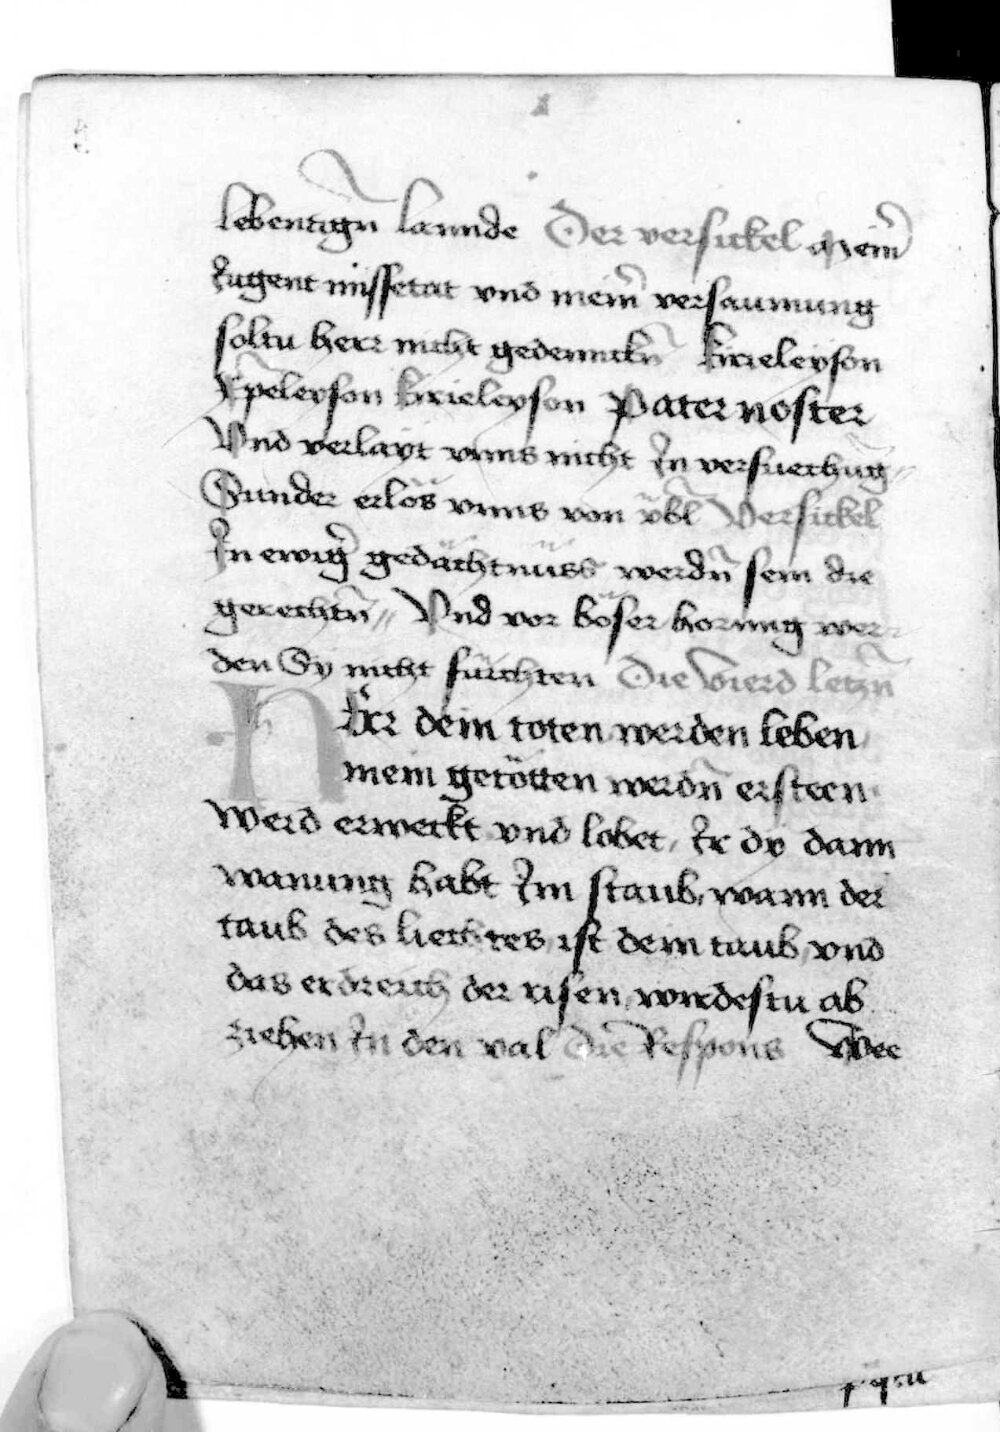 lebentign̄ lannde Der versickel Mein̄
Jugent missetat vnd mein̄ versaumung
soltu herr nicht gedennckn̄ kirieleyson
Xp̄eleyson kirieleyson Pater noster
Vnd verlaÿt vnns nicht Jn versuechūg
Sunder erlös vnns von v̈bl Versickel
Jn ewigr̄ gedächtnüss werdn̄ sein die
gerechtn̄ Vnd vor böser horung wer
den Sy nicht fürchten Die Vierd letzn̄
Herr dein toten werden leben
mein getötten werdn̄ ersteen
Werd erweckt vnd lobet, Jr dÿ dann
wanung habt Jm staub, wann der
taub des liechtes, ist dein taub, vnd
das erdreich der risen, wirdestu ab
ziehen Jn den val Die Respons Wee